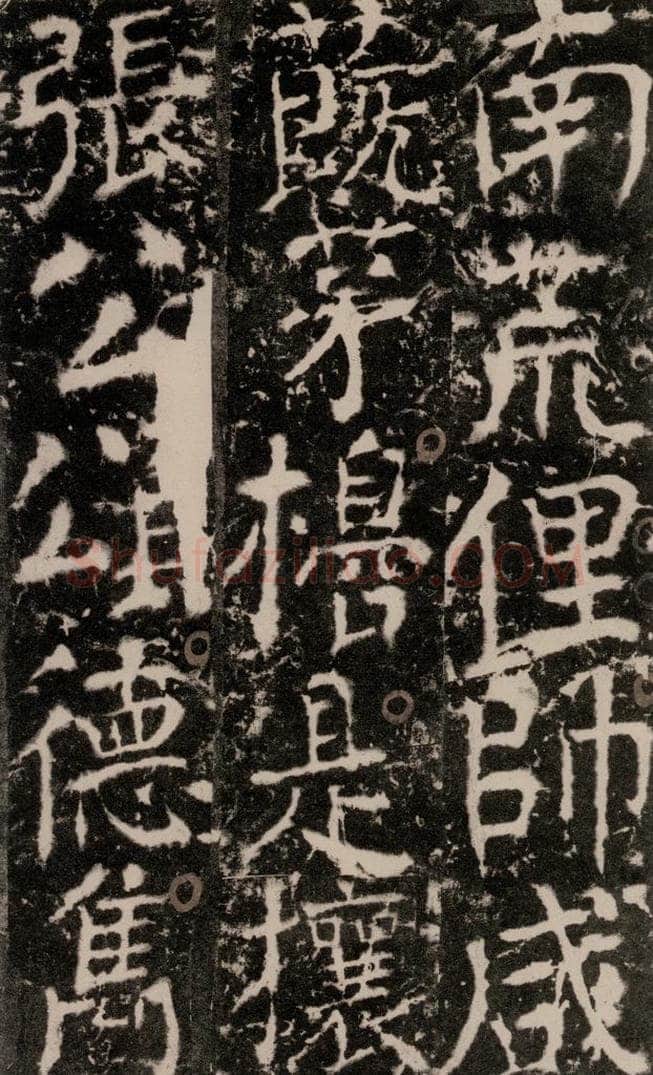 南荒俚帥咸
茅是攘
張公頌德雋
Shufaziliao.COM